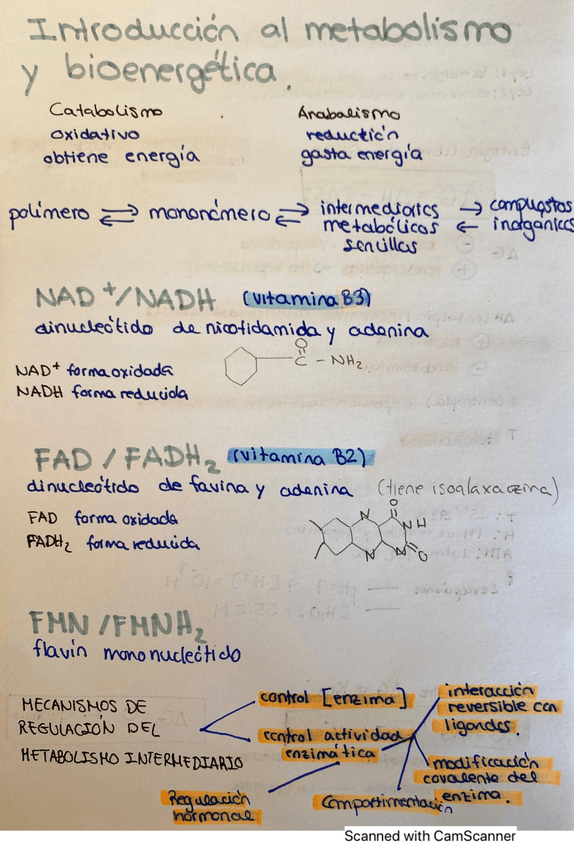 Introducción al metabolismo
y bioenergética.
Catabolismo
oxidativo
obtiene energía
Anabolismo
reductión
gasta energía
polímero ⇌ mononómero ⇌ intermediarios metabólicos sencillos ⇌ compuestos inorganicos
NAD⁺/NADH (vitamina B3)
dinucleótido de nicotidamida y adenina
NAD⁺ forma oxidada
NADH forma reducida
O
C - NH₂
FAD / FADH₂ (vitamina B2)
dinucleótido de favina y adenina (tiene isoalaxacina)
FAD forma oxidada
FADH₂ forma reducida
O
N
NH
N
N
O
FMN /FMNH₂
flavín mononucleótido
MECANISMOS DE
REGULACIÓN DEL
METABOLISMO INTERMEDIARIO
control [enzima]
control actividad
enzimática
interacción
reversible con
ligandos.
modificación
covalente del
enzima.
Compartimentación
Regulación
hormonal
Scanned with CamScanner